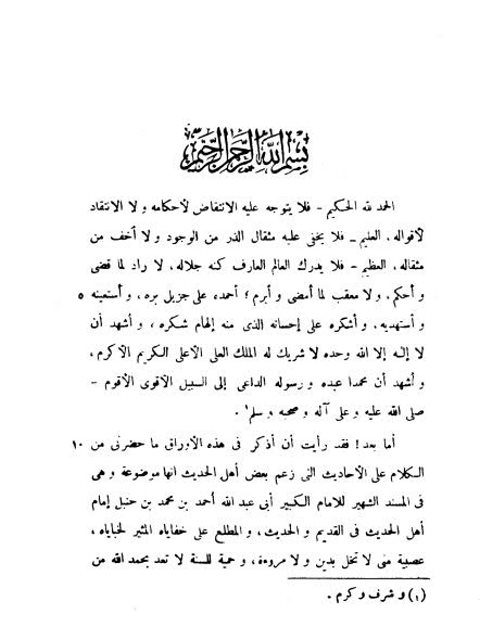 بسم الله الرحمن الرحيم
الحمد لله الحكيم - فلا يتوجه عليه الانتقاض لأحكامه و لا الانتقاد
لأقواله، العليم - فلا يخفى عليه مثقال الذر من الوجود و لا أخف من
مثقاله، العظيم - فلا يدرك العالم العارف كنه جلاله، لا راد لما قضى
و أحكم، و لا معقب لما أمضى و أبرم؛ أحمده على جزيل بره، و أستعينه ٥
و أستهديه، و أشكره على إحسانه الذى منه إلهام شكره، و أشهد أن
لا إله إلا الله وحده لا شريك له الملك العلى الأعلى الكريم الأكرم،
و أشهد أن محمدا عبده و رسوله الداعى إلى السبيل الأقوى الأقوم -
صلى الله عليه و على آله و صحبه و سلم١.
أما بعد! فقد رأيت أن أذكر فى هذه الأوراق ما حضرنى من ١٠
الكلام على الأحاديث التى زعم بعض أهل الحديث انها موضوعة و هى
فى المسند الشهير للامام الكبير أبى عبد الله أحمد بن محمد بن حنبل إمام
أهل الحديث فى القديم و الحديث، و المطلع على خفاياه المثير لخباياه،
عصبية منى لا تخل بدين و لا مروءة، و حمية للسنة لا تعد بحمد الله من
(١) و شرف و كرم.